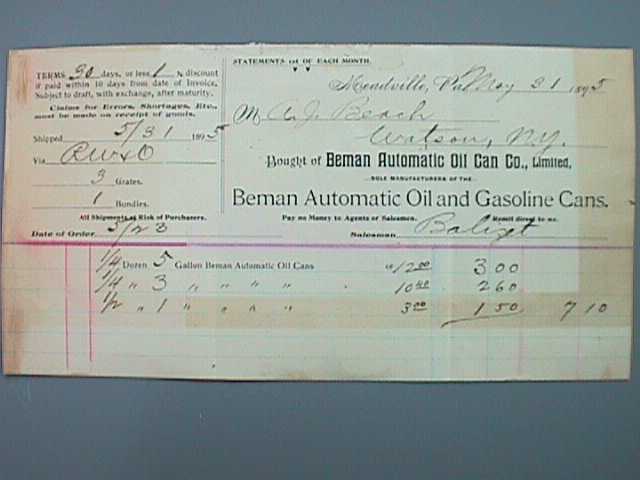 STATEMENTS 1ST OF EACH MONTH.
TERMS 30 days, or less 1 % discount
if paid within 10 days from date of Invoice.
Subject to draft, with exchange, after maturity.
Claims for Errors, Shortages, Etc.,
must be made on receipt of goods.
Shipped 5/31 1895
Via R W & O
3 Crates.
1 Bundles.
All Shipments at Risk of Purchasers.
Date of Order 5/23
Meadville, Pa. May 31 1895
M A. J. Beach
Watson, N.Y.
Bought of Beman Automatic Oil Can Co., Limited,
SOLE MANUFACTURERS OF THE
Beman Automatic Oil and Gasoline Cans.
Pay no Money to Agents or Salesmen. Remit direct to us.
Salesman
1/4 Dozen 5 Gallon Beman Automatic Oil Cans 12 00 3 00
1/4 " 3 " " " " 10 40 2 60
1/2 " 1 " " " " 3 00 1 50 7 10